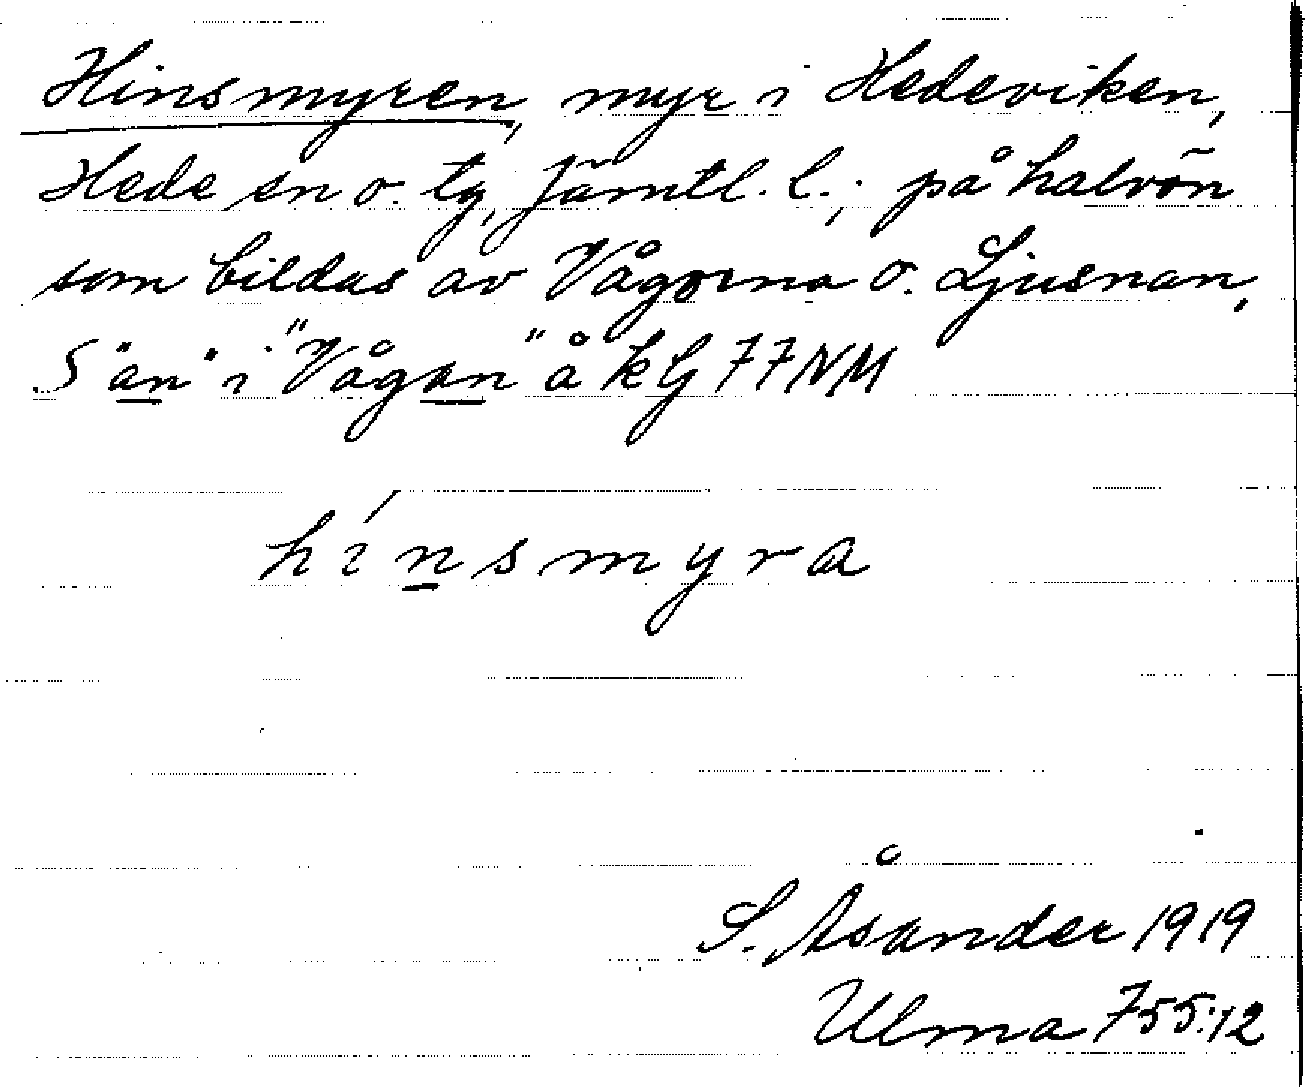 Hinsmyren, myr i Hedeviken,
Hede sn o. tg, Jämtl. l.; på halvön
som bildas av Vågorna o. Ljusnan,
S "än" i "Vågan" å kG 77NM
hínsmyra
S. Åsander 1919
Ulma 755:12